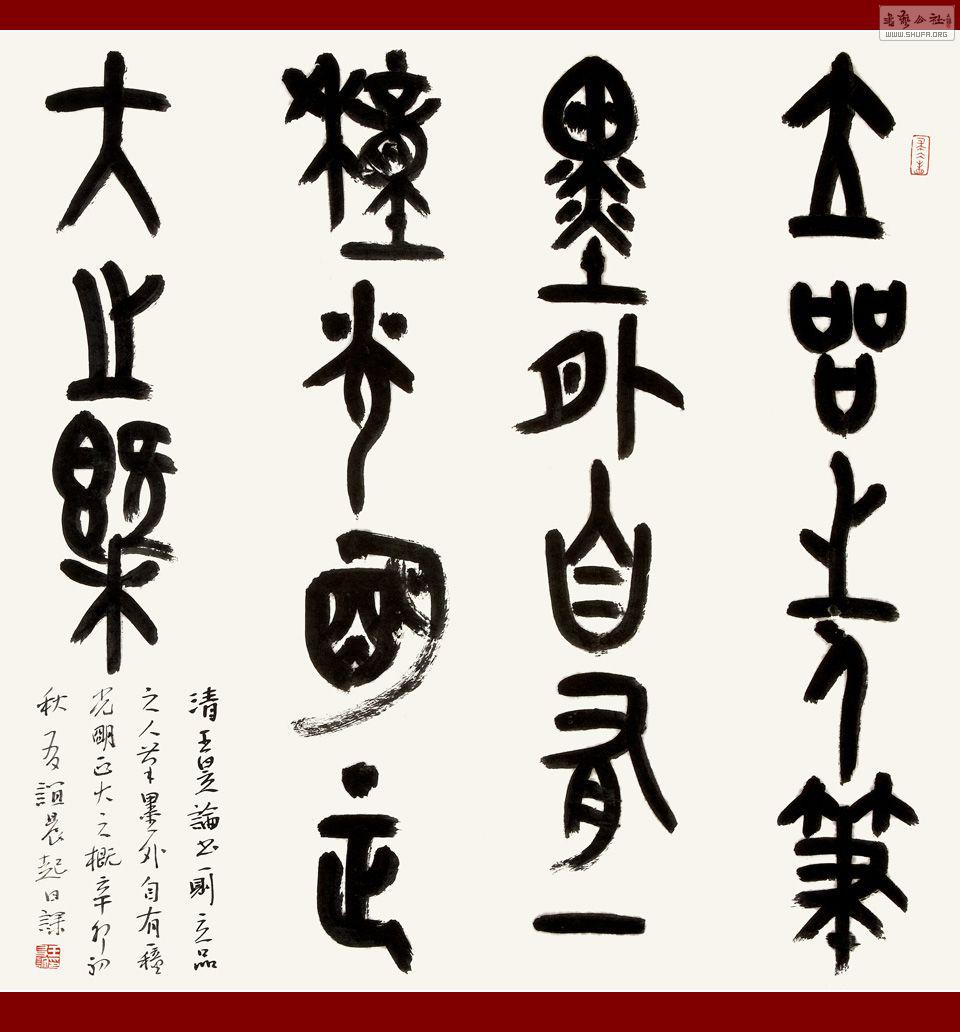 書藝公社
WWW.SHUFA.ORG
立品之人筆
墨外自有一
種光明正
大之概
清王昱論書一則立品
之人筆墨外自有一種
光明正大之概辛卯初
秋友誼晨起日課